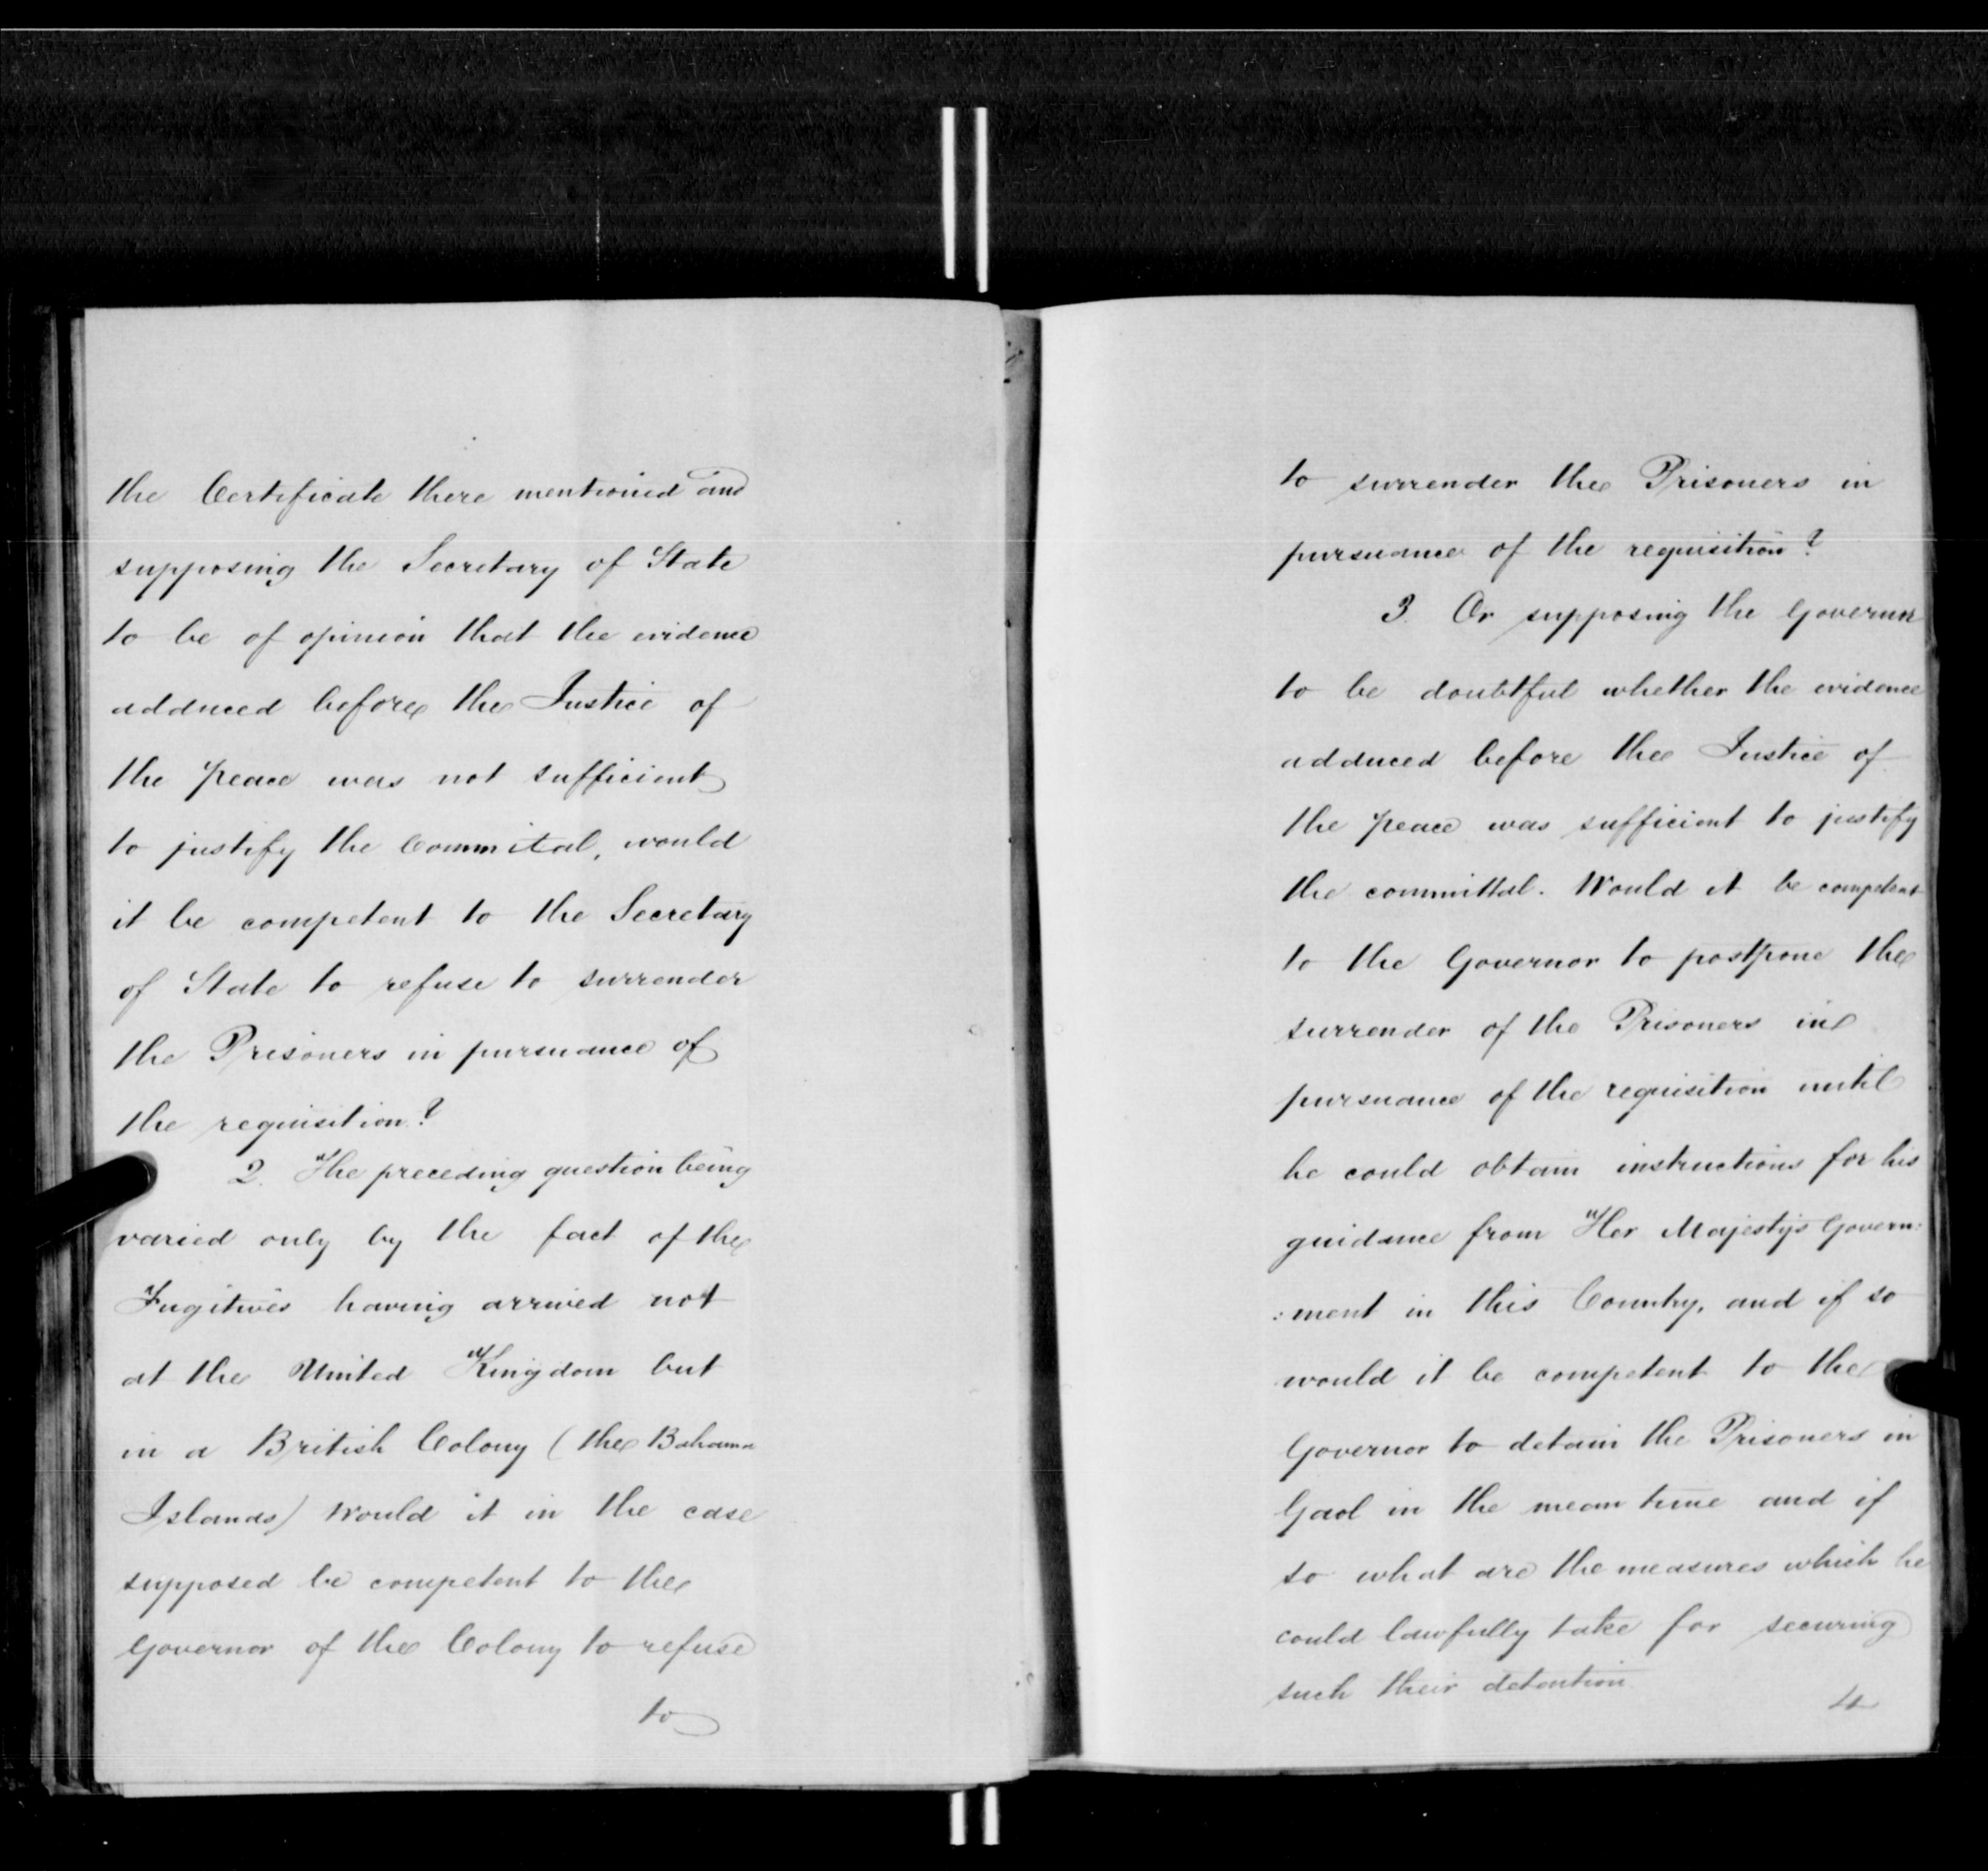 the Certificate there mentioned and
supposing the Secretary of State
to be of opinion that the evidence
adduced before the Justice of
the peace was not sufficient
to justify the Commital, would
it be competent to the Secretary
of State to refuse to surrender
the Prisoners in pursuance of
the requisition?
2. The preceding question being
varied only by the fact of the
Fugitives having arrived not
at the United Kingdom but
in a British Colony (the Bahama
Islands) Would it in the case
supposed be competent to the
Governor of the Colony to refuse
to
to surrender the Prisoners in
pursuance of the requisition?
3. Or supposing the Governor
to be doubtful whether the evidence
adduced before the Justice of
the peace was sufficient to justify
the committal. Would it be competent
to the Governor to postpone the
surrender of the Prisoners in
pursuance of the requisition until
he could obtain instructions for his
guidance from Her Majesty's Govern:
:ment in this Country, and if so
would it be competent to the
Governor to detain the Prisoners in
Gaol in the mean time and if
so what are the measures which he
could lawfully take for securing
such their detention
4